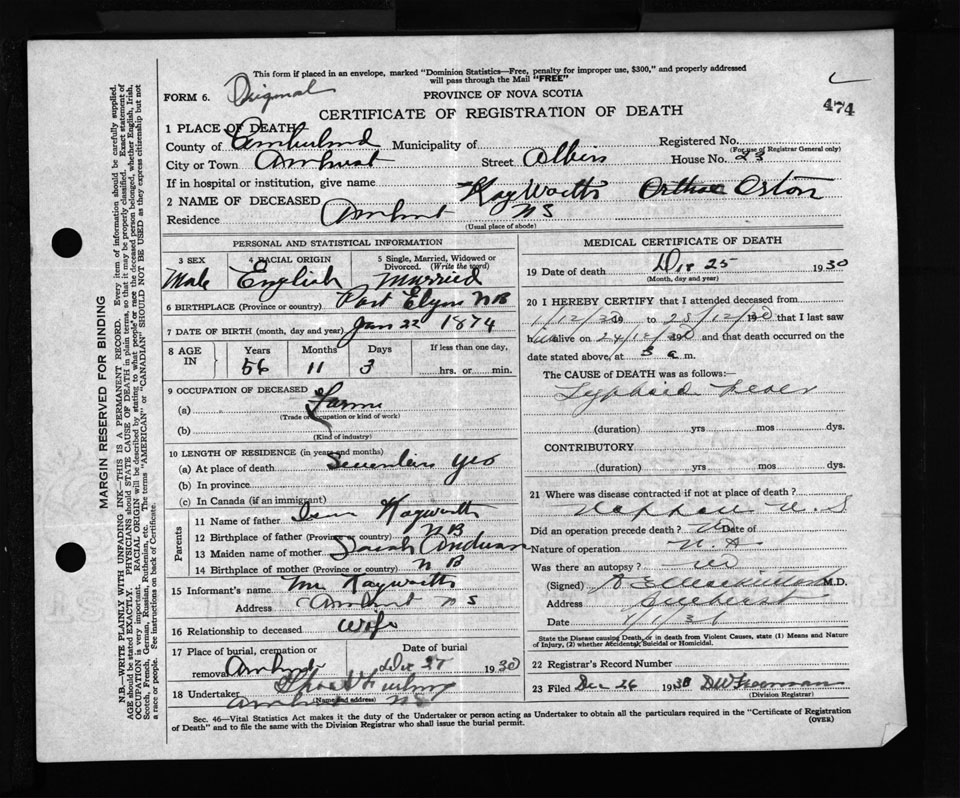 This form if placed in an envelope, marked "Dominion Statistics—Free, penalty for improper use, $300," and properly addressed
will pass through the Mail "FREE"
FORM 6. Original
PROVINCE OF NOVA SCOTIA
474
CERTIFICATE OF REGISTRATION OF DEATH
1 PLACE OF DEATH
County of Cumberland Municipality of Registered No.
(For use of Registrar General only)
City or Town Amherst Street Albion House No. 23
If in hospital or institution, give name
2 NAME OF DECEASED Haywarth Orton
Residence Amherst NS
(Usual place of abode)
PERSONAL AND STATISTICAL INFORMATION
3 SEX 4 RACIAL ORIGIN 5 Single, Married, Widowed or Divorced. (Write the word)
Male English Married
6 BIRTHPLACE (Province or country) Port Elgin NB
7 DATE OF BIRTH (month, day and year) Jan 22 1874
8 AGE IN Years Months Days If less than one day,
56 11 3 hrs. or min.
9 OCCUPATION OF DECEASED
(a)
(Trade occupation or kind of work)
(b)
(Kind of industry)
10 LENGTH OF RESIDENCE (in years and months)
(a) At place of death Seventeen yrs
(b) In province
(c) In Canada (if an immigrant)
Parents
11 Name of father Haywarth
12 Birthplace of father (Province or country) NB
13 Maiden name of mother Sarah
14 Birthplace of mother (Province or country) NB
15 Informant's name Mrs Haywarth
Address Amherst NS
16 Relationship to deceased Wife
17 Place of burial, cremation or removal Amherst
Date of burial Dec 27 1930
18 Undertaker
(Name and address)
Amherst NS
MEDICAL CERTIFICATE OF DEATH
19 Date of death Dec 25 1930
(Month, day and year)
20 I HEREBY CERTIFY that I attended deceased from
1/12/30 19 to 25/12/30 19 that I last saw
him alive on 24/12/30 19 and that death occurred on the
date stated above, at 3 a m.
The CAUSE of DEATH was as follows:
Typhoid Fever
(duration) yrs mos dys.
CONTRIBUTORY
(duration) yrs mos dys.
21 Where was disease contracted if not at place of death?
N. S
Did an operation precede death? No Date of
Nature of operation N. A
Was there an autopsy? No
(Signed) M.D.
Address Amherst
Date
State the Disease causing Death, or in death from Violent Causes, state (1) Means and Nature
of Injury, (2) whether Accidental, Suicidal or Homicidal.
22 Registrar's Record Number
23 Filed Dec 26 1930 DW Freeman
(Division Registrar)
Sec. 46—Vital Statistics Act makes it the duty of the Undertaker or person acting as Undertaker to obtain all the particulars required in the "Certificate of Registration
of Death" and to file the same with the Division Registrar who shall issue the burial permit.
(OVER)
MARGIN RESERVED FOR BINDING
N.B.—WRITE PLAINLY WITH UNFADING INK—THIS IS A PERMANENT RECORD. Every item of information should be carefully supplied.
AGE should be stated EXACTLY. PHYSICIANS should STATE CAUSE OF DEATH in plain terms, so that it may be properly classified. Exact statement of
OCCUPATION is very important. RACIAL ORIGIN will be described by stating to what people or race the deceased person belonged, whether English, Irish,
Scotch, French, German, Russian, Ruthenian, etc. The terms "AMERICAN" or "CANADIAN" SHOULD NOT BE USED as they express citizenship but not
a race or people. See instructions on back of Certificate.